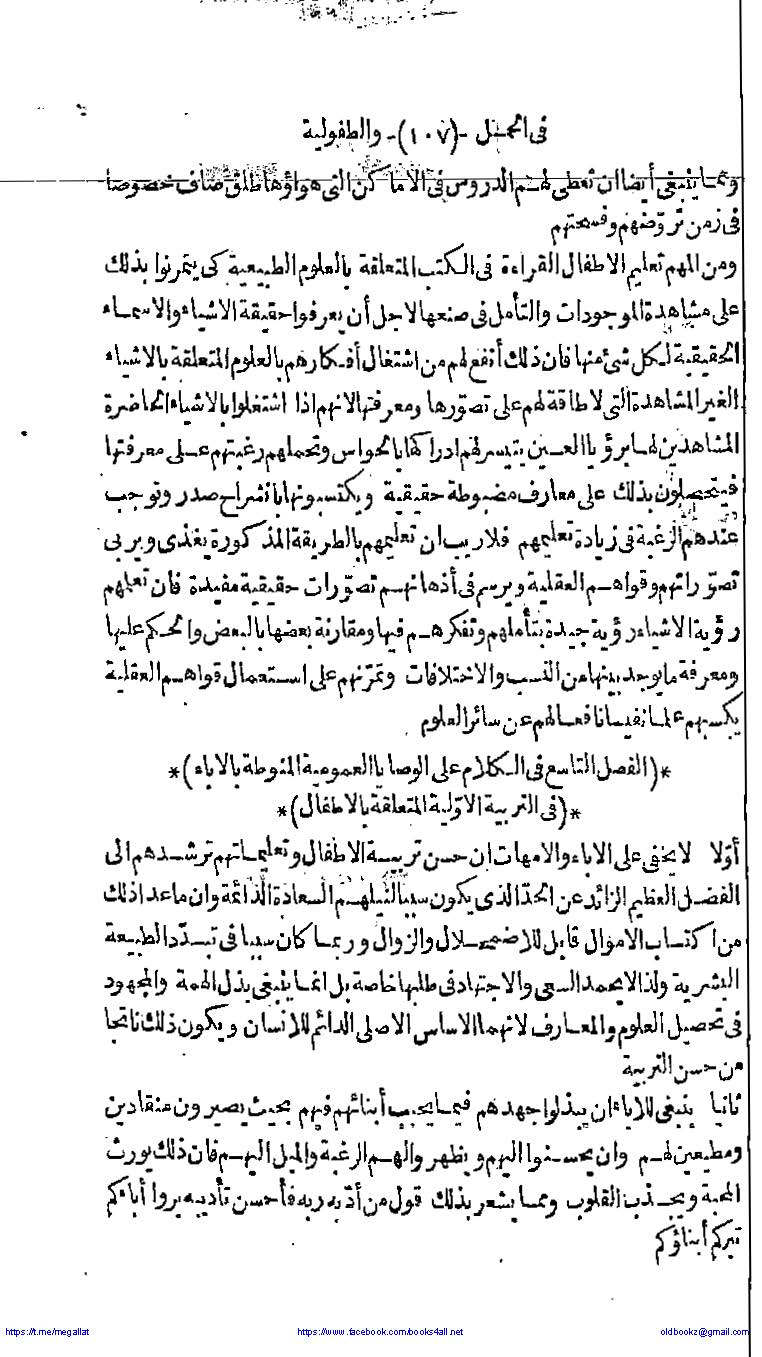 فى الحمل -(١٠٧)- والطفولية
ومما ينبغى أيضا ان تعطى لهم الدروس فى الاماكن التى هواؤها طلق صاف خصوصا
فى زمن تروّضهم وفسحتهم
ومن المهم تعليم الاطفال القراءة فى الكتب المتعلقة بالعلوم الطبيعية كى يتمرنوا بذلك
على مشاهدة الموجودات والتأمل فى صنعها لاجل أن يعرفوا حقيقة الاشياء والاسماء
الحقيقية لكل شئ منها فان ذلك أنفع لهم من اشتغال أفكارهم بالعلوم المتعلقة بالاشياء
الغير المشاهدة التى لا طاقة لهم على تصوّرها ومعرفتها لانهم اذا اشتغلوا بالاشياء الحاضرة
المشاهدين لها برؤيا العين يتيسر لهم ادراكها بالحواس وتحملهم رغبتهم على معرفتها
فيتحصلون بذلك على معارف مضبوطة حقيقية ويكتسبونها بانشراح صدر وتوجب
عندهم الرغبة فى زيادة تعليمهم فلاريب ان تعليمهم بالطريقة المذكورة يغذى ويربى
تصوّراتهم وقواهم العقلية ويرسم فى أذهانهم تصوّرات حقيقية مفيدة فان تعلمهم
رؤية الاشياء رؤية جيدة بتأملهم وتفكرهم فيها ومقارنة بعضها بالبعض والحكم عليها
ومعرفة ما يوجد بينها من النسب والاختلافات وتمرّنهم على استعمال قواهم العقلية
يكسبهم علما نفيسا نافعا لهم عن سائر العلوم
*(الفصل التاسع فى الكلام على الوصايا العمومية المنوطة بالاباء)*
*(فى التربية الاوّلية المتعلقة بالاطفال)*
أوّلا لا يخفى على الاباء والامهات ان حسن تربية الاطفال وتعليماتهم ترشدهم الى
الفضل العظيم الزائد عن الحدّ الذى يكون سببا لنيلهم السعادة الدائمة وان ماعدا ذلك
من اكتساب الاموال قابل للاضمحلال والزوال وربما كان سببا فى تبدّد الطبيعة
البشرية ولذا لا يحمد السعى والاجتهاد فى طلبها خاصة بل انما ينبغى بذل الهمة والمجهود
فى تحصيل العلوم والمعارف لانهما الاساس الاصلى الدائم للانسان ويكون ذلك ناتجا
من حسن التربية
ثانيا ينبغى للاباء ان يبذلوا جهدهم فيما يحبب أبنائهم فيهم بحيث يصيرون منقادين
ومطيعين لهم وان يحسنوا اليهم ويظهروا لهم الرغبة والميل اليهم فان ذلك يورث
المحبة ويجذب القلوب ومما يشعر بذلك قول من أدّبه ربه فأحسن تأديبه بروا أباءكم
تبركم أبناؤكم
https://t.me/megallat
https://www.facebook.com/books4all.net
oldbookz@gmail.com